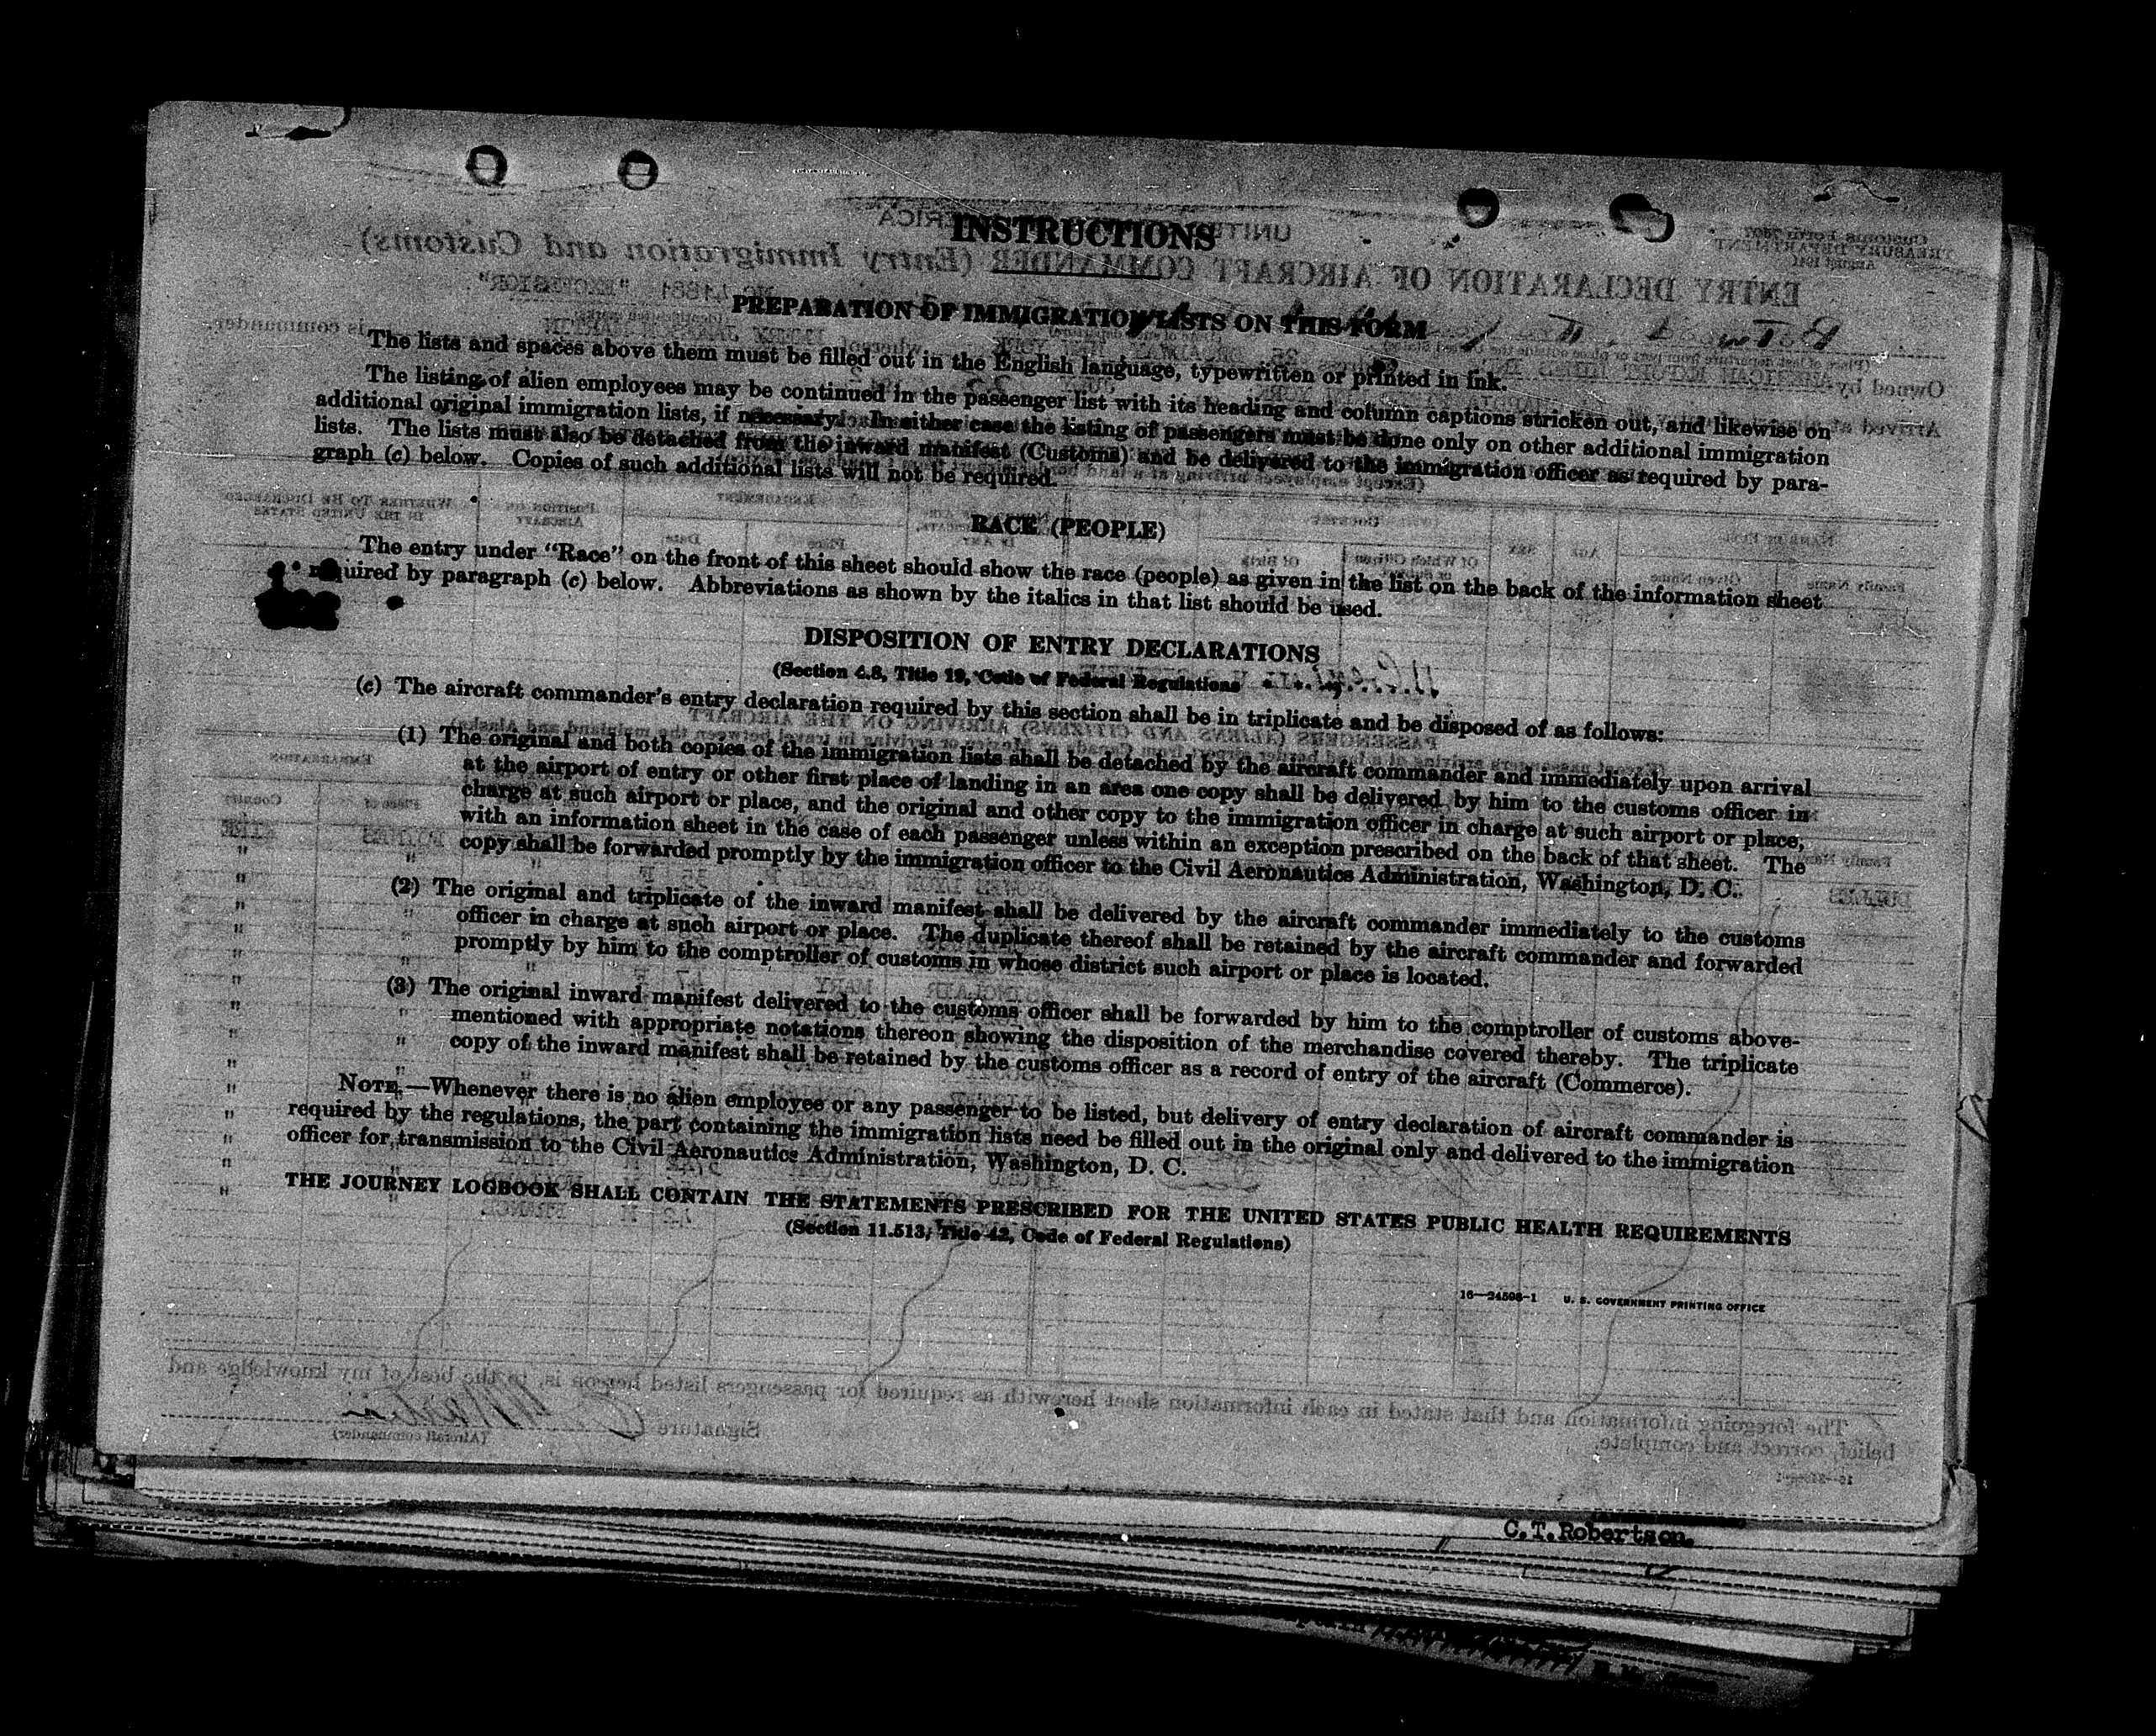 INSTRUCTIONS
PREPARATION OF IMMIGRATION LISTS ON THIS FORM
The lists and spaces above them must be filled out in the English language, typewritten or printed in ink.
The listing of alien employees may be continued in the passenger list with its heading and column captions stricken out, and likewise on
additional original immigration lists, if necessary. In either case the listing of passengers must be done only on other additional immigration
lists. The lists must also be detached from the inward manifest (Customs) and be delivered to the immigration officer as required by para-
graph (c) below. Copies of such additional lists will not be required.
RACE (PEOPLE)
The entry under "Race" on the front of this sheet should show the race (people) as given in the list on the back of the information sheet
required by paragraph (c) below. Abbreviations as shown by the italics in that list should be used.
DISPOSITION OF ENTRY DECLARATIONS
(Section 4.8, Title 19, Code of Federal Regulations
(c) The aircraft commander's entry declaration required by this section shall be in triplicate and be disposed of as follows:
(1) The original and both copies of the immigration lists shall be detached by the aircraft commander and immediately upon arrival
at the airport of entry or other first place of landing in an area one copy shall be delivered by him to the customs officer in
charge at such airport or place, and the original and other copy to the immigration officer in charge at such airport or place,
with an information sheet in the case of each passenger unless within an exception prescribed on the back of that sheet. The
copy shall be forwarded promptly by the immigration officer to the Civil Aeronautics Administration, Washington, D. C.
(2) The original and triplicate of the inward manifest shall be delivered by the aircraft commander immediately to the customs
officer in charge at such airport or place. The duplicate thereof shall be retained by the aircraft commander and forwarded
promptly by him to the comptroller of customs in whose district such airport or place is located.
(3) The original inward manifest delivered to the customs officer shall be forwarded by him to the comptroller of customs above-
mentioned with appropriate notations thereon showing the disposition of the merchandise covered thereby. The triplicate
copy of the inward manifest shall be retained by the customs officer as a record of entry of the aircraft (Commerce).
NOTE.—Whenever there is no alien employee or any passenger to be listed, but delivery of entry declaration of aircraft commander is
required by the regulations, the part containing the immigration lists need be filled out in the original only and delivered to the immigration
officer for transmission to the Civil Aeronautics Administration, Washington, D. C.
THE JOURNEY LOGBOOK SHALL CONTAIN THE STATEMENTS PRESCRIBED FOR THE UNITED STATES PUBLIC HEALTH REQUIREMENTS
(Section 11.513, Title 42, Code of Federal Regulations)
16—24598-1 U. S. GOVERNMENT PRINTING OFFICE
C.T.Robertson.